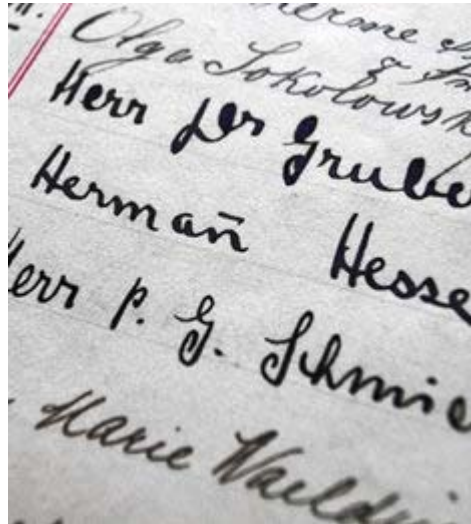 Olga Sokolowsk
Herr Dr Grube
Hermañ Hesse
Herr P. G. Schmie
Marie